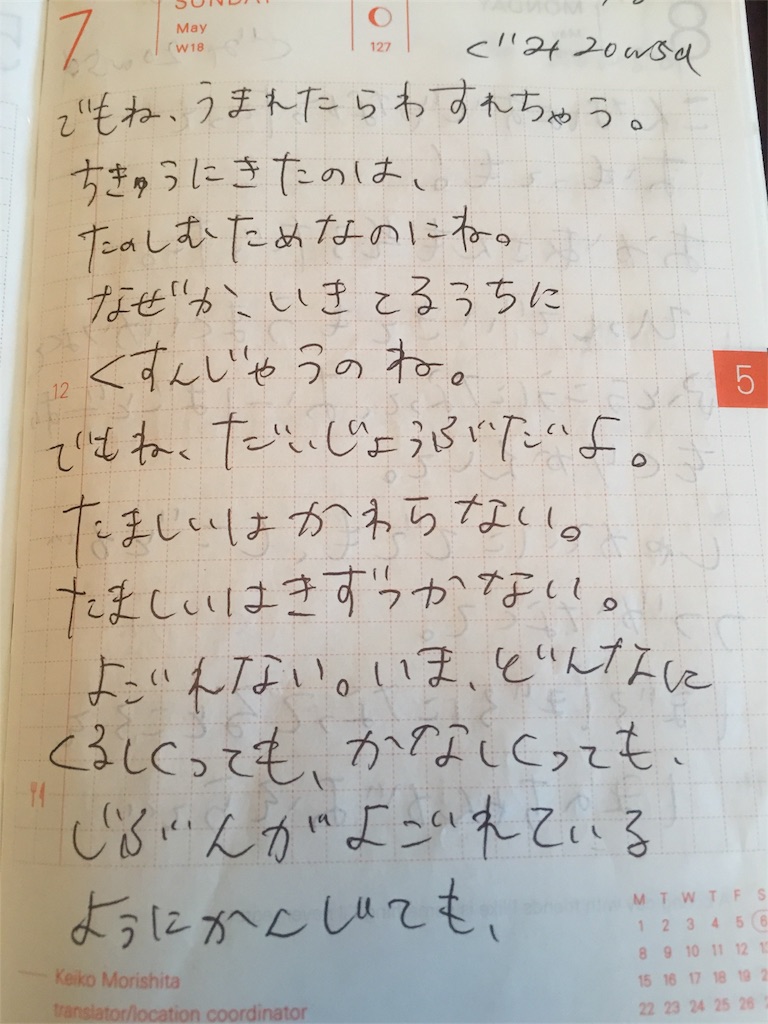 7
SUNDAY
May
W18
127
ぐみ 20
でもね、うまれたらわすれちゃう。
ちきゅうにきたのは、
たのしむためなのにね。
なぜか、いきてるうちに
くすんじゃうのね。
12
5
でもね、だいじょうぶだよ。
たましいはかわらない。
たましいはきずつかない。
よごれない。いま、どんなに
くるしくっても、かなしくっても、
じぶんがよごれている
ようにかんじても、
M T W T F S
1 2 3 4 5 6
8 9 10 11 12
15 16 17 18 19
22 23 24 25 26
Keiko Morishita
translator/location coordinator